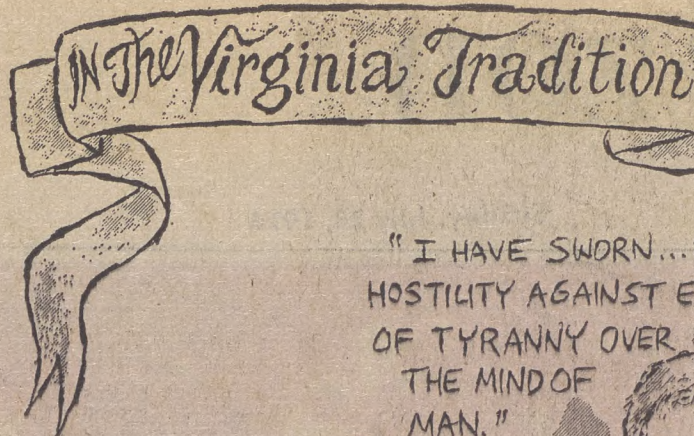 IN The Virginia Tradition
"I HAVE SWORN...
HOSTILITY AGAINST E
OF TYRANNY OVER
THE MIND OF
MAN."